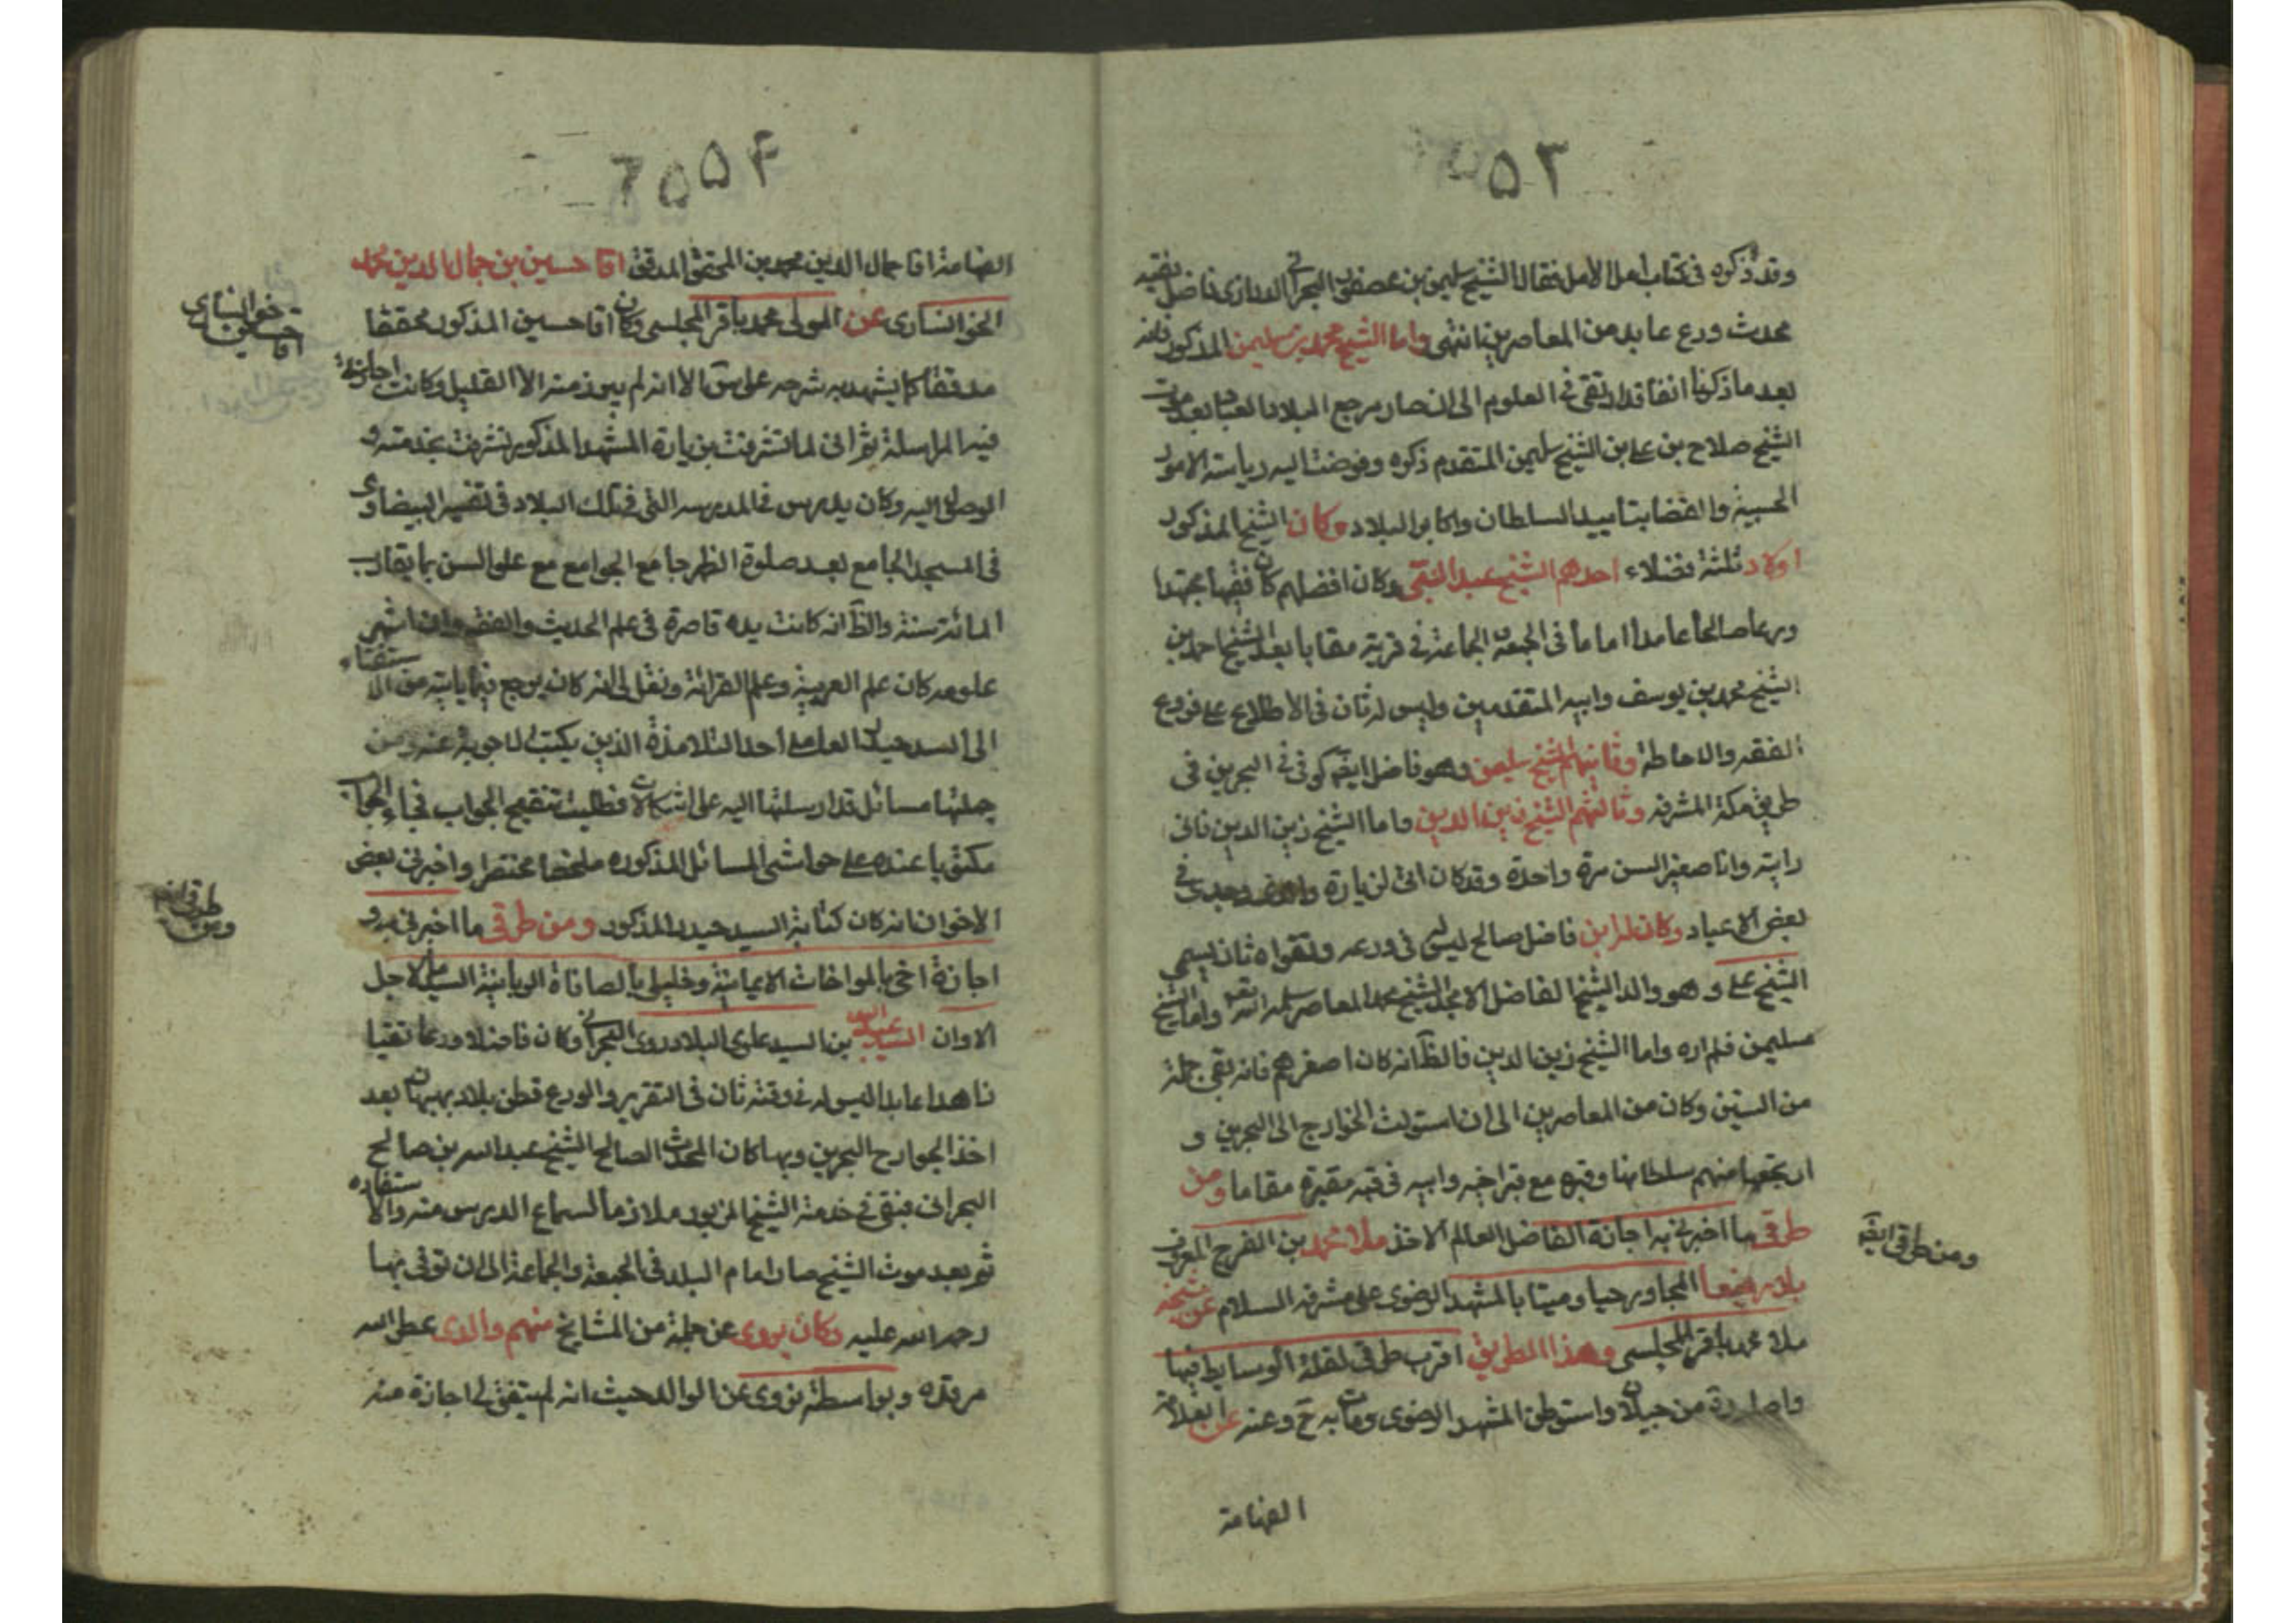 ٥٣
وقد ذكره فى كتاب امل الامل فقال الشيخ سليمن بن عصفور البحرانى الدرازى فاضل فقيه
محدث ورع عابد من المعاصرين انتهى واما الشيخ محمد بن سليمن المذكور فانه
بعد ما ذكرنا انفا قد ارتقى فى العلوم الى ان صار مرجع البلاد والعباد بعد موت
الشيخ صلاح بن على بن الشيخ سليمن المتقدم ذكره وفوضت اليه رياسة الامور
الحسبية والقضا بتاييد السلطان واكابر البلاد وكان الشيخ المذكور
اولاد ثلثة فضلاء احدهم الشيخ عبد النبى وكان افضلهم كان فقيها مجتهدا
ورعا صالحا عاملا اماما فى الجمعة الجماعة فى قرية مقابا بعد الشيخ احمد بن
الشيخ محمد بن يوسف وابيه المتقدمين وليس له ثان فى الاطلاع على فروع
الفقه والاحاطة وثانيهم الشيخ سليمن وهو فاضل ايضا توفى فى البحرين فى
طريق مكة المشرفه وثالثهم الشيخ زين الدين واما الشيخ زين الدين فانى
رايته وانا صغير السن مرة واحدة وقد كان اتى لزيارة والدى وجدى فى
بعض الاعياد وكان له ابن فاضل صالح ليس له فى ورعه وتقواه ثان يسمى
الشيخ على وهو والد الشيخ الفاضل الامجد الشيخ محمد المعاصر سلمه الله تعه واما الشيخ
سليمن فلم اره واما الشيخ زين الدين فالظ انه كان اصغرهم فانه بقى جملة
من السنين وكان من المعاصرين الى ان استولت الخوارج الى البحرين و
ارتجعها منهم سلطانها وقبره مع قبر اخيه وابيه فى قبة مقبرة مقابا ومن
طرقى ما اخبرنى به اجازة الفاضل العالم الاخذ ملا محمد بن الفرج المعروف
بملا رفيعا المجاور حيا وميتا بالمشهد الرضوى على مشرفه السلام عن شيخه
ملا محمد باقر المجلسى وهذا الطريق اقرب طرقى لقلة الوسايط فيها
واصله من جيلان واستوطن المشهد الرضوى ومات به رح وعنه عن العلامة
الفهامة
ومن طرقى ايضا
٥٤
الفهامة اقا جمال الدين محمد بن المحقق المدقق اقا حسين بن جمال الدين محمد
الخوانسارى عن المولى محمد باقر المجلسى وكان اقا حسين المذكور محققا
مدققا كما يشهد به شرحه على س الا انه لم يبرز منه الا القليل وكانت اجازته
فيه المراسلة ثم انى لما تشرفت بزيارة المشهد المذكور تشرفت بخدمته و
الوصول اليه وكان يدرس فى المدرسه التى فى تلك البلاد فى تفسير البيضاوى
فى المسجد الجامع بعد صلوة الظهر جامع الجوامع مع على السن بما يقارب
المائة سنة والظ انه كانت يده قاصرة فى علم الحديث والفقه وان اشهر
علومه كان علم العربية وعلم القرائة ونقل لى انه كان يرجع فيما ياتيه من الاستفتاء
الى السيد حيدر العاملى احد التلامذة الذين يكتب الاجوبة عنه ومن
جملتها مسائل قد ارسلتها اليه على اشكالات فطلبت تنقيح الجواب فجاء الجواب
مكتوبا عنده على حواشى المسائل المذكوره ملخصا مختصرا واخبرنى بعض
الاخوان انه كان كتابة السيد حيدر المذكور ومن طرقى ما اخبرنى به و
اجازة اخى بالمواخات الايمانية وخليلى بالمصافاة الربانية السيد الاجل
الاوان السيد عبد الله بن السيد علوى البلادروى البحرانى وكان فاضلا ورعا تقيا
زاهدا عابدا ليس له فى وقته ثان فى التقرير والورع قطن بلاد بهبهان بعد
اخذ الجوارح البحرين وبها كان المحدث الصالح الشيخ عبد الله بن صالح
البحرانى فبقى فى خدمة الشيخ المزبور ملازما لسماع الدرس منه والاستفاده
ثم بعد موت الشيخ صار امام البلد فى الجمعة والجماعة الى ان توفى بها
رحمه الله عليه وكان يروى عن جملة من المشايخ منهم والدى عطر الله
مرقده وبواسطته نروى عن الوالد حيث انه لم يتفق لى اجازة منه
خوانسارى
اقا حسين
ومن طرقى ايضا